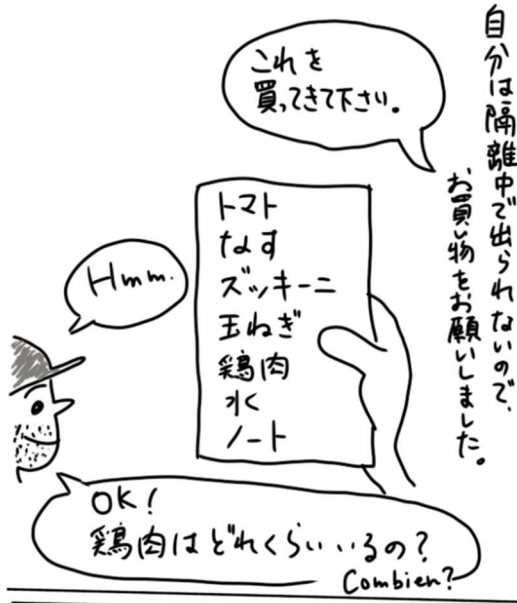 自分は隔離中で出られないので、
お買い物をお願いしました。
これを
買ってきて下さい。
トマト
なす
ズッキーニ
玉ねぎ
鶏肉
水
ノート
Hmm.
OK!
鶏肉はどれくらいいるの？
Combien?